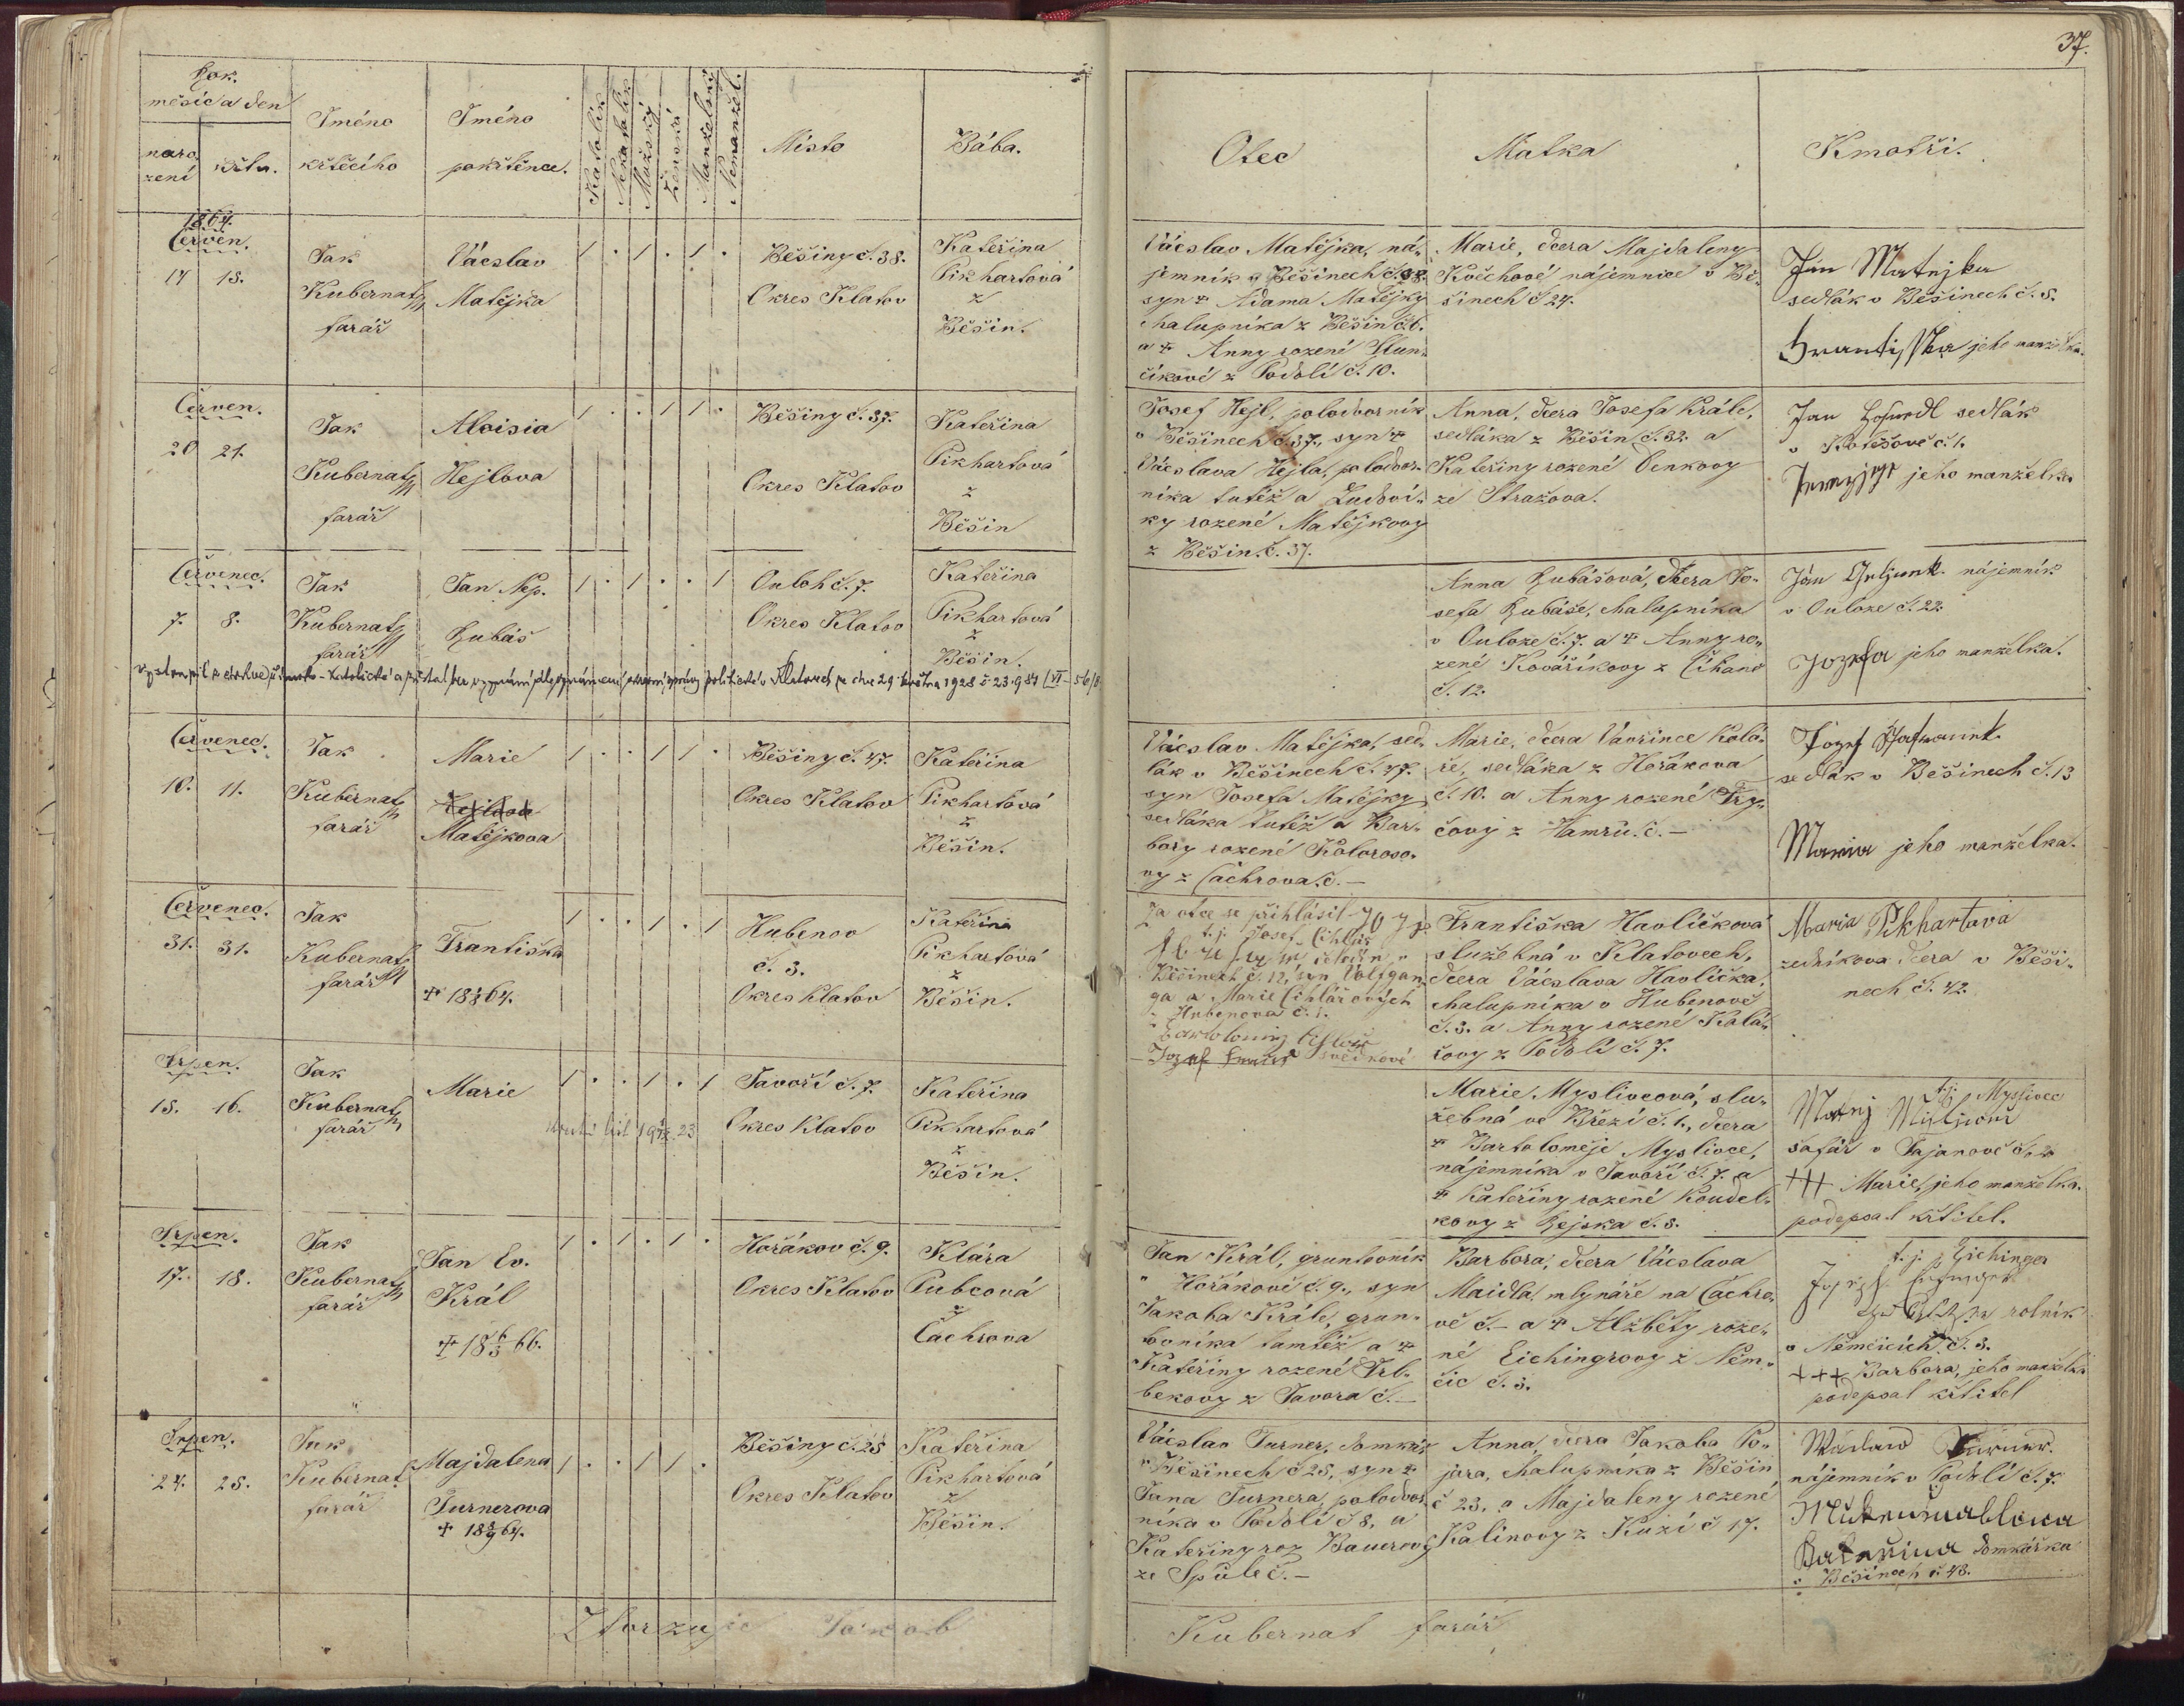 37.
Rok.
měsíc a den
naro
zení
křtu.
Jméno
křtícího
Jméno
pokřtěnce.
Katolík
Nekatolík
Mužský
Ženská
Manželský
Nemanžel.
Místo
Bába.
Otec
Matka
Kmotři.
1864.
Červen.
17 18.
Jak
Kubernat
farář
Vácslav
Matějka
1 . 1 . 1 .
Běšiny č. 38.
Okres Klatov
Kateřina
Pikhartová
z
Běšin.
Vácslav Matějka, ná-
jemník v Běšinech č. 38.
syn ✝ Adama Matějky
chalupníka z Běšin č. 6.
a ✝ Anny rozené Slun-
číkové z Podolí č. 10.
Marie, dcera Majdaleny
Květchové nájemnice v Bě-
šinech č. 24.
Jan Matejka
sedlák v Běšinech č. 5.
Frantisska jeho manželka.
Červen.
20 21.
Jak
Kubernat
farář
Aloisia
Hejlova
1 . . 1 1 .
Běšiny č. 37.
Okres Klatov
Kateřina
Pikhartová
z
Běšin
Josef Hejl, polodvorník
v Běšinech č. 37., syn ✝
Vácslava Hejla, polodvor-
níka tutéž a Ludoví-
ky rozené Matějkovy
z Běšin č. 37.
Anna, dcera Josefa Krále,
sedláka z Běšin č. 32. a
Kateřiny rozené Denkovy
ze Strážova.
Jan sedlák
v Kotěšově č. 1.
jeho manželka
Červenec.
7. 8.
Jak
Kubernat
farář
Jan Nep.
Lubáš
1 . 1 . . 1
Ouloh č. 7.
Okres Klatov
Kateřina
Pikhartová
z
Běšin.
vystoupil z církve římsko-katolické a zůstal bez vyznání dle oznámení okresní správy politické v Klatovech ze dne 29. května 1928 č. 23.984
Anna Lubášová, dcera Jo-
sefa Lubáše, chalupníka
v Ouloze č. 7. a ✝ Anny ro-
zené Kováříkovy z Číhaně
č. 12.
Ján nájemník
v Ouloze č. 22.
Jozefa jeho manželka.
Červenec.
10. 11.
Jak
Kubernat
farář
Marie
Matějkova
1 . . 1 1 .
Běšiny č. 47.
Okres Klatov
Kateřina
Pikhartová
z
Běšin.
Vácslav Matějka, sed-
lák v Běšinech č. 47.
syn Josefa Matějky
sedláka tutéž a Bar-
bory rozené Koloroso-
vy z Čachrova č. –
Marie, dcera Vavřince Kolá-
ře, sedláka z Hořákova
č. 10. a Anny rozené
čovy z Hamrů č. –
Jozef
sedlák v Běšinech č. 13
Maria jeho manželka.
Červenec.
31. 31.
Jak
Kubernat
farář
Františka
1 . . 1 . 1
Hubenov
č. 3.
Okres Klatov
Kateřina
Pikhartová
z
Běšin.
Za otce se přihlásil
t. j. Josef Cihlář
Běšinech č. 12, syn Volfgan-
ga a Marie Cihlářových
z Hubenova č. 1.
Františka Havlíčková
služebná v Klatovech,
dcera Vácslava Havlíčka,
chalupníka v Hubenově
č. 3. a Anny rozené Kolá-
řovy z Podolí č. 7.
Maria Pikhartava
zedníkova dcera v Běši-
nech č. 42.
Srpen.
15. 16.
Jak
Kubernat
farář
Marie
1 . . 1 . 1
Javoří č. 7.
Okres Klatov
Kateřina
Pikhartová
z
Běšin.
Marie Myslivcová, slu-
žebná ve Březí č. 1., dcera
✝ Bartoloměje Myslivce,
nájemníka v Javoří č. 7. a
✝ Kateřiny rozené Koudel-
kovy z Zejska č. 8.
t. j. Myslivec
Matej
šafář v Tajanově č. 2
+++ Marie, jeho manželka.
podepsal křtitel.
Srpen.
17. 18.
Jak
Kubernat
farář
Jan Ev.
Král
1 . 1 . 1 .
Hořákov č. 9.
Okres Klatov
Klára
Pubcová
z
Čachrova
Jan Král, gruntovník
v Hořákově č. 9., syn
Jakoba Krále, grun-
tovníka tamtéž a ✝
Kateřiny rozené Vrl-
bekovy z Javora č. –
Barbora, dcera Vácslava
Maidla, mlynáře na Čachro-
vě č. – a ✝ Alžběty roze-
né Eichingrovy z Něm-
čic č. 3.
t. j. Eichinger
rolník
v Němčicích č. 3.
+++ Barbora, jeho manželka
podepsal křtitel
Srpen.
24. 25.
Jak
Kubernat
farář
Majdalena
Turnerova
1 . . 1 1 .
Běšiny č. 25
Okres Klatov
Kateřina
Pikhartová
z
Běšin.
Vácslav Turner, domkář
v Běšinech č. 25, syn ✝
Jana Turnera, polodvor-
níka v Podolí č. 8, a
Kateřiny roz. Bauerovy
ze Spůle č. –
Anna, dcera Jakoba Po-
jara, chalupníka z Běšin
č. 23, a Majdaleny rozené
Kalinovy z Kuzí č. 17.
Waclaw Turner.
nájemník v Podolí č. 7.
Katařina domkářka
v Běšinech č. 48.
Stvrzuje Jakob
Kubernat farář